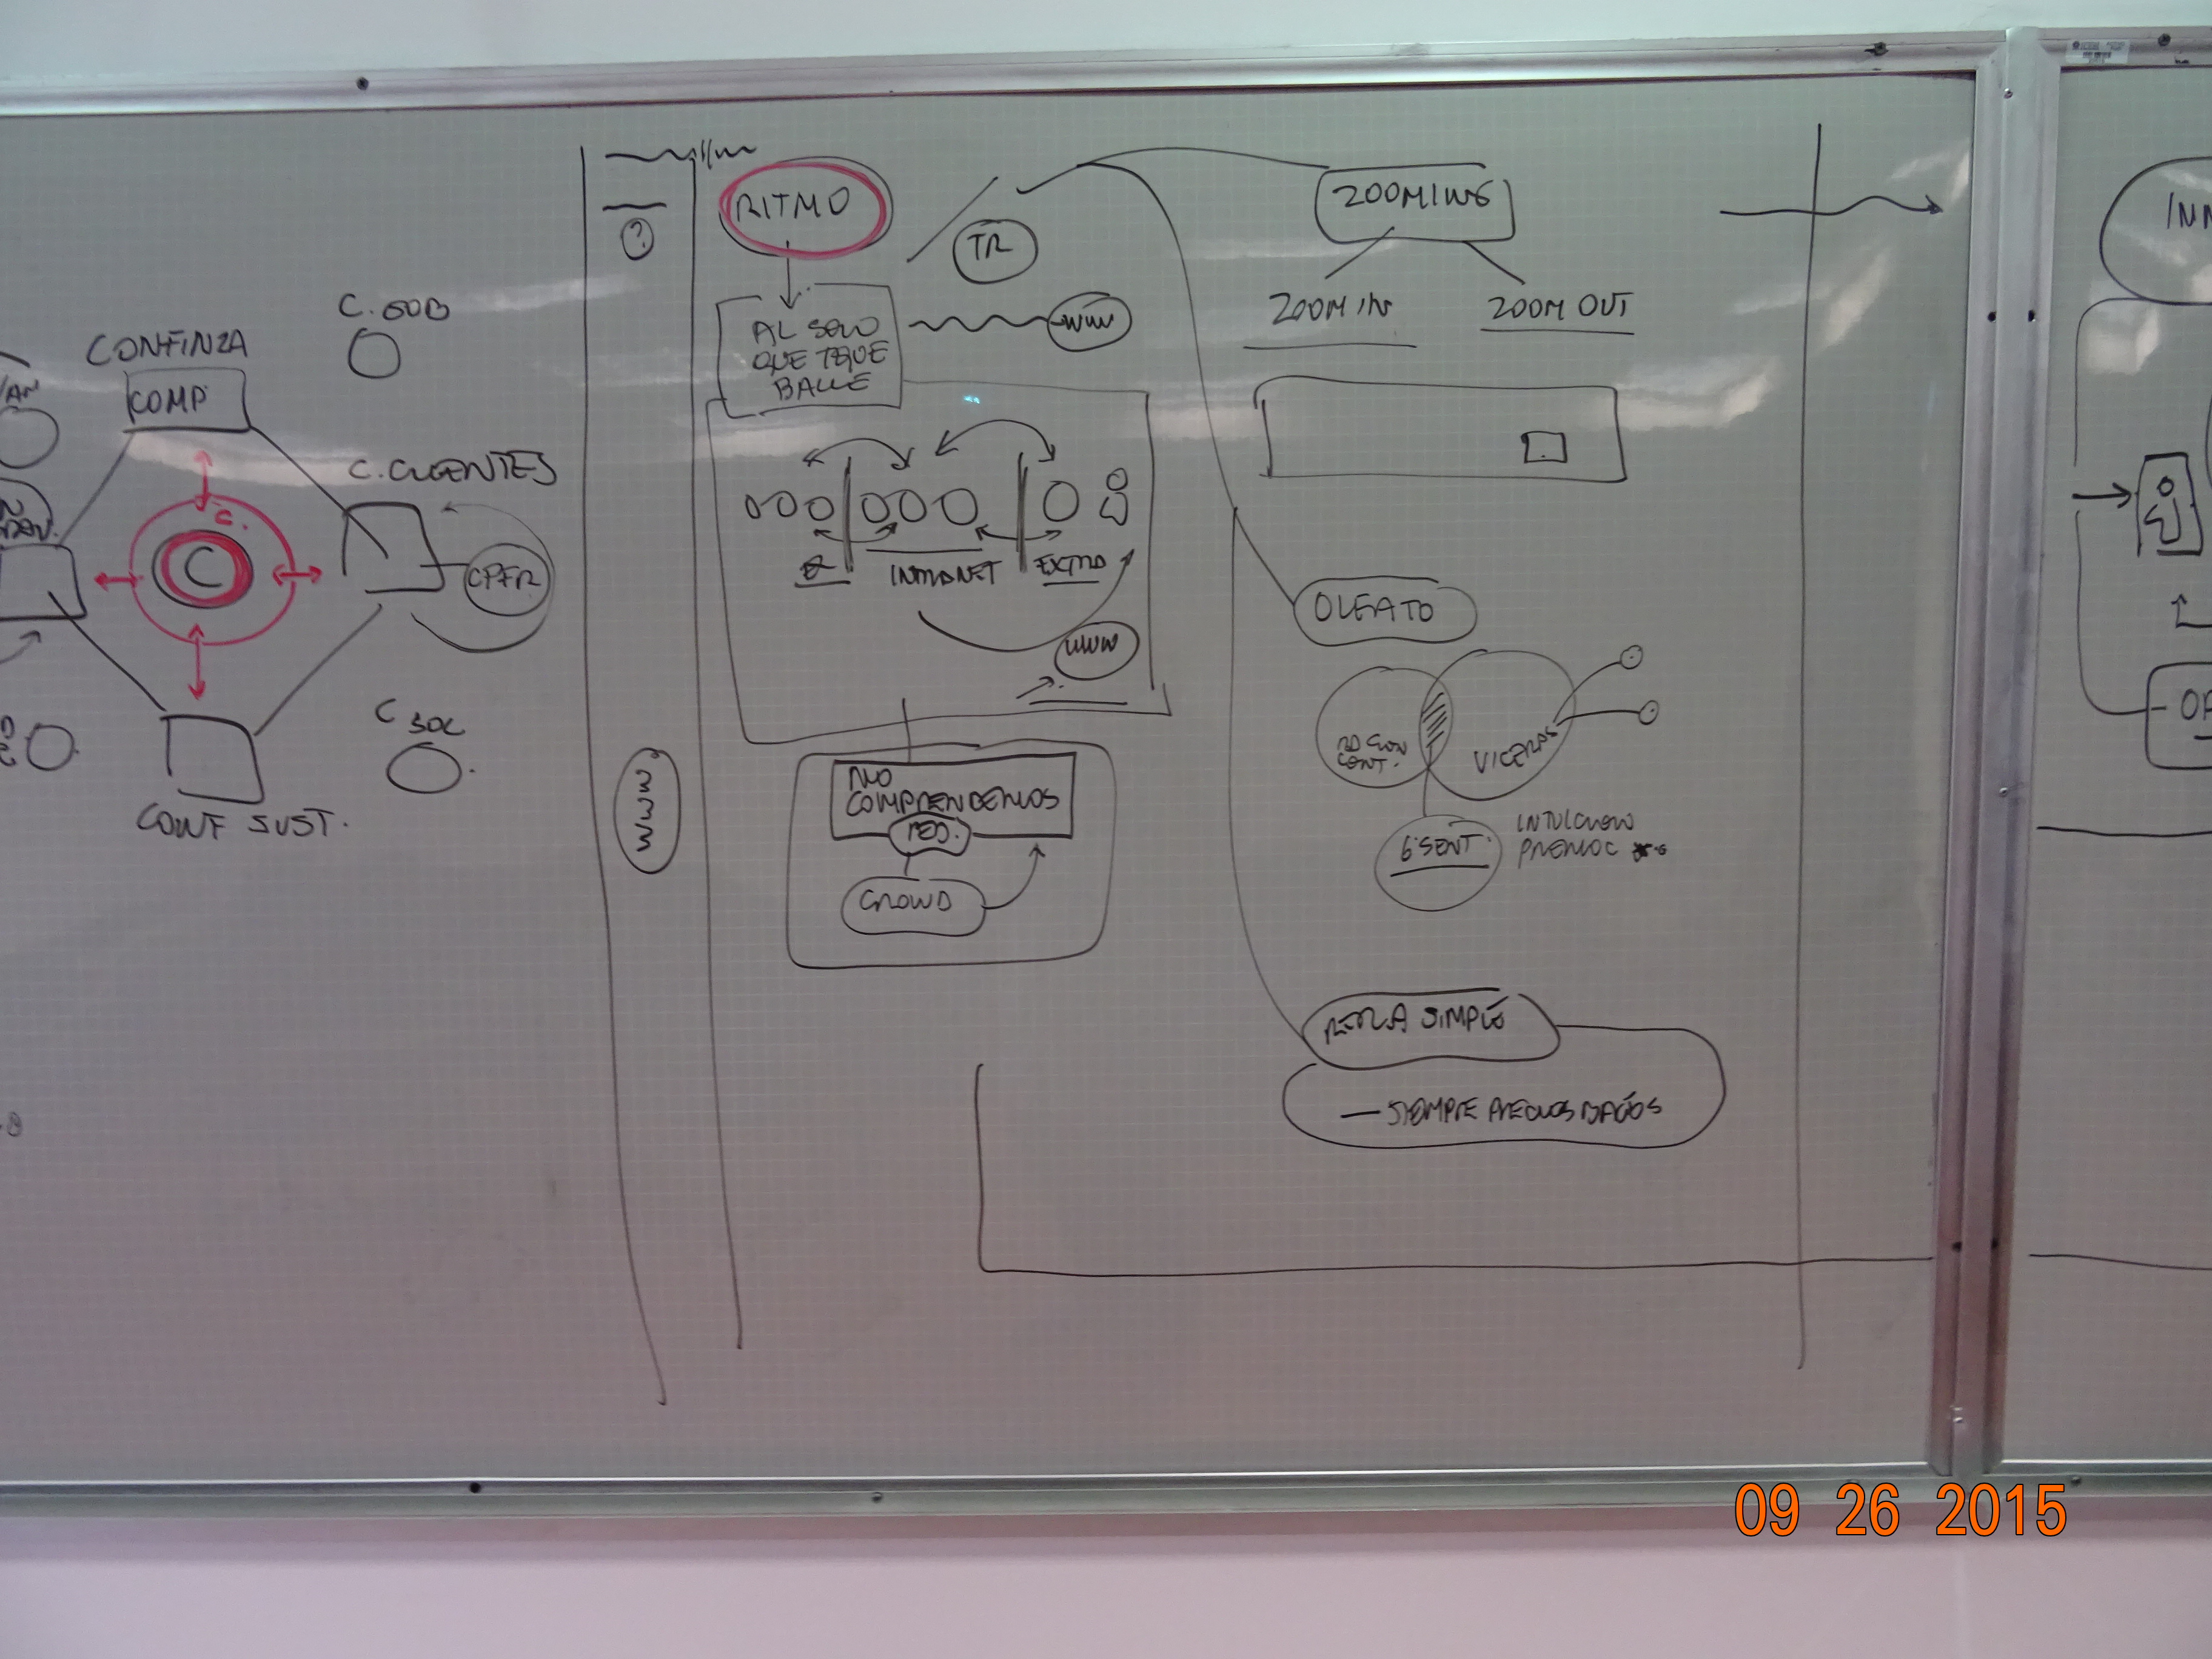 C. GOB
CONFINZA
COMP.
C. CLIENTES
C.
C
CPFR
C SOC
CONF SUST.
?
WWW
RITMO
AL SON
QUE TOQUE
BAILE
TR
WWW
INTRANET
EXTRA
WWW
NO
COMPRENDEMOS
RED.
CROWD
ZOOMING
ZOOM IN
ZOOM OUT
OLFATO
CONT.
VICERAS
6° SENT.
INTUICION
PREMOC
REGLA SIMPLE
— SIEMPRE PRECIOS BAJOS
INN
OP
09 26 2015